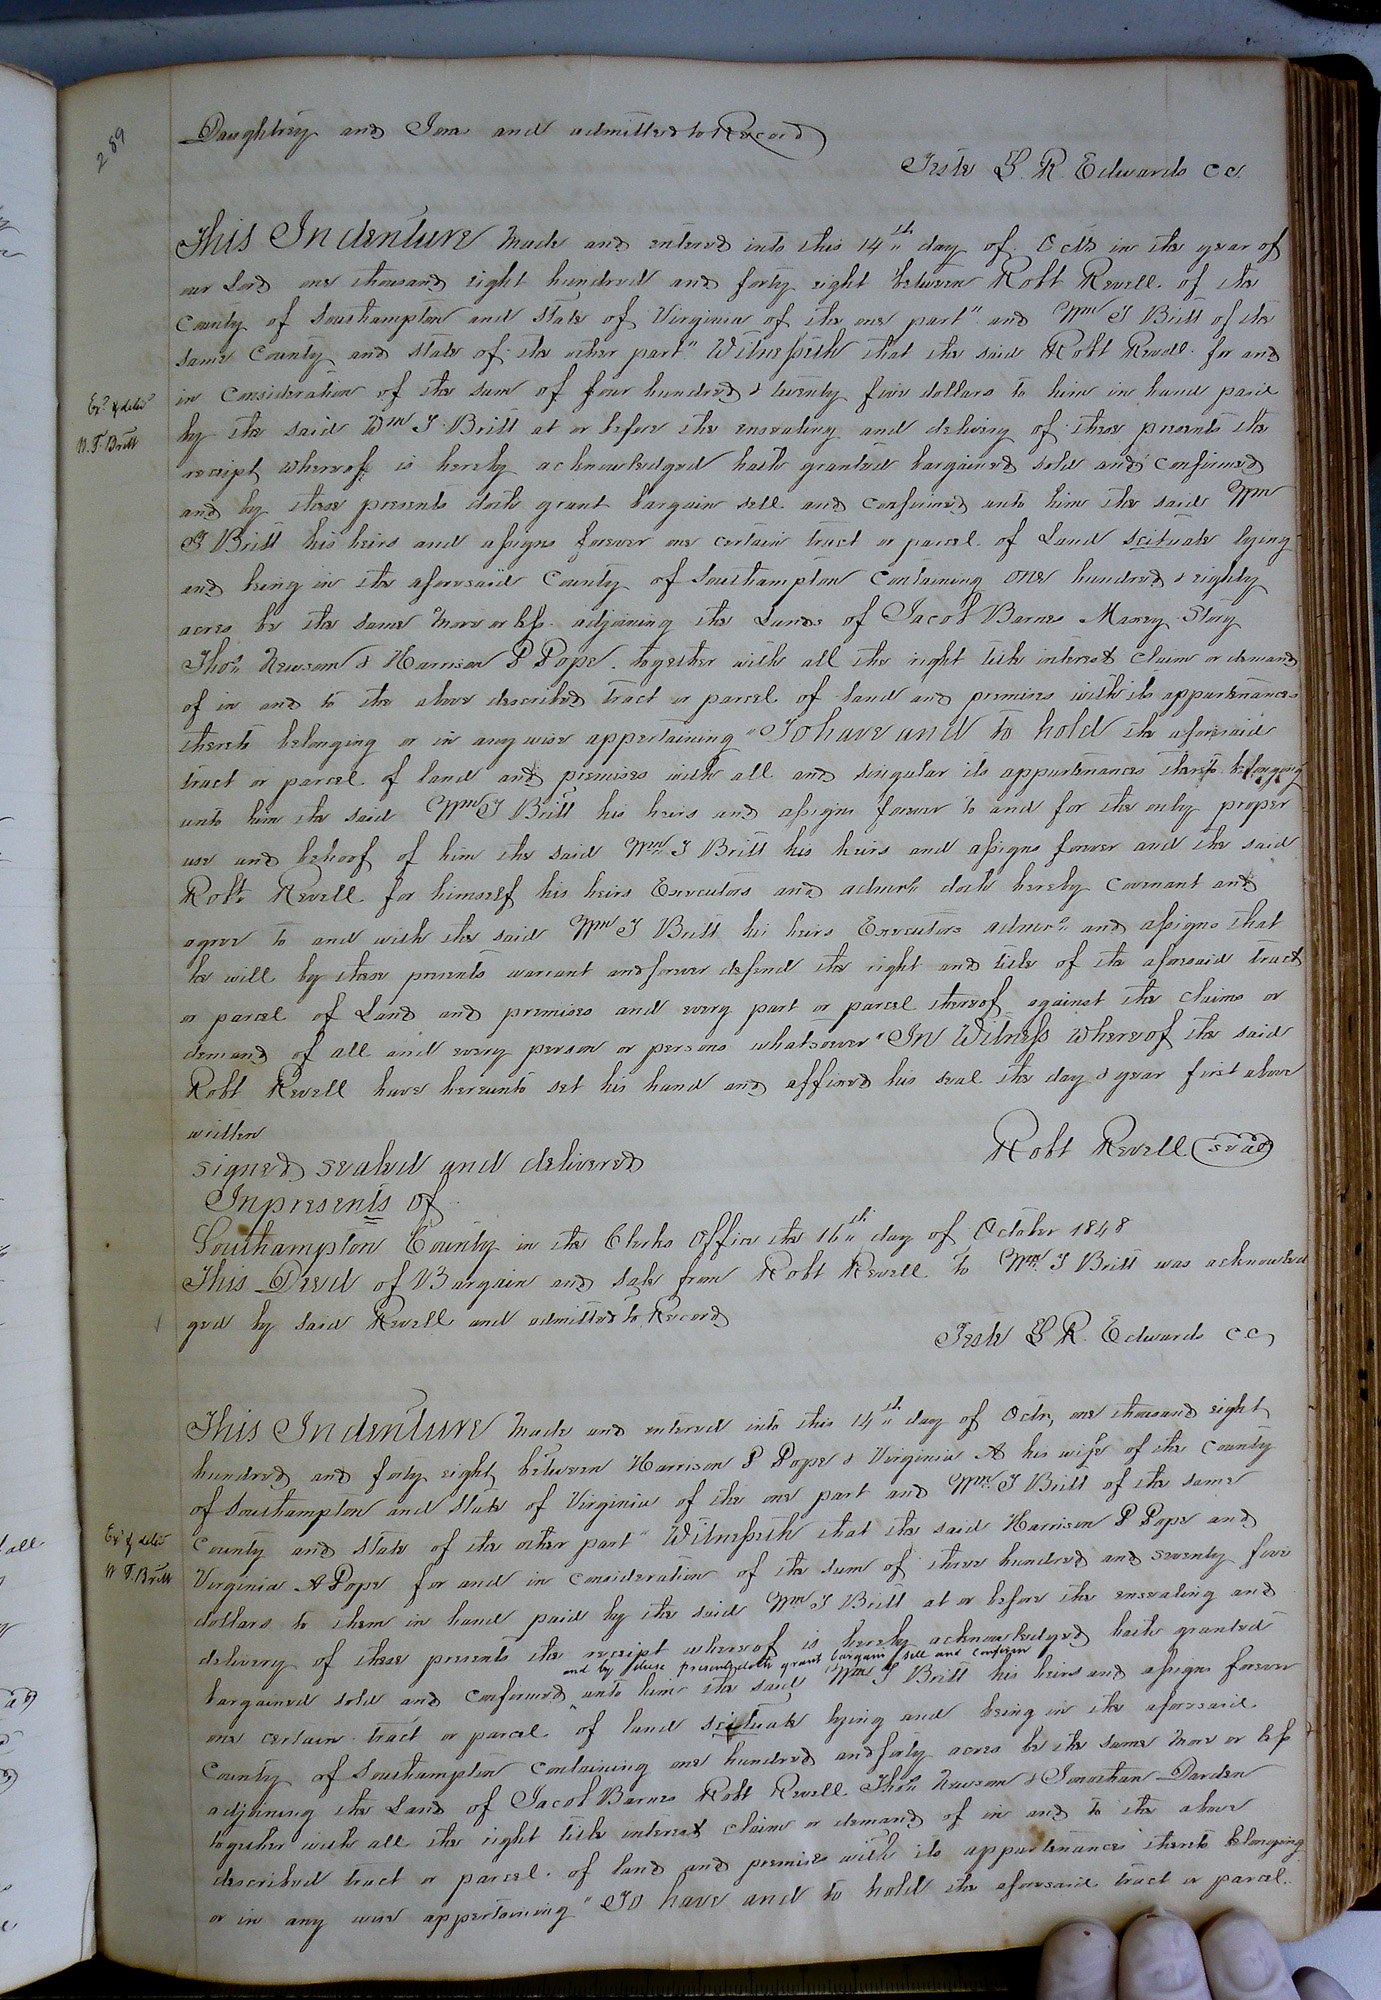 289
Daughtrey and Iona and admitted to Record
Teste L. R. Edwards CC.
This Indenture Made and entered into this 14th day of Octr in the year of
our Lord one thousand eight hundred and forty eight between Robt Revell of the
County of Southampton and State of Virginia of the one part" and Wm T Britt of the
same County and State of the other part" Witnesseth that the said Robt Revell for and
in Consideration of the sum of four hundred & twenty five dollars to him in hand paid
by the said Wm T Britt at or before the ensealing and delivry of these presents the
receipt whereof is hereby acknowledged hath granted bargained sold and confirmed
and by these presents doth grant bargain sell and confirmed unto him the said Wm
T Britt his heirs and assigns forever one certain tract or parcel of Land scituate lying
and being in the aforesaid County of Southampton Containing one hundred & eighty
acres be the same more or less adjoining the Lands of Jacob Barnes Maxey Story
Thos Newsom & Harrison P Pope together with all the right title interest claim or demand
of in and to the above described tract or parcel of land and premises with its appurtenances
thereto belonging or in any wise appertaining "To have and to hold the aforesaid
tract or parcel of land and premises with all and singular its appurtenances thereto belonging
unto him the said Wm T Britt his heirs and assigns forever to and for the only proper
use and behoof of him the said Wm T Britt his heirs and assigns forever and the said
Robt Revell for himself his heirs Executors and admrs doth hereby Covenant and
agree to and with the said Wm T Britt his heirs Executors admrs and assigns that
he will by these presents warrant and forever defend the right and title of the aforesaid tract
or parcel of Land and premises and every part or parcel thereof against the claims or
demand of all and every person or persons whatsoever" In Witness whereof the said
Robt Revell have hereunto set his hand and affixed his seal the day & year first above
written
Robt Revell seal
signed sealed and delivered
In presents of
Southampton County in the Clerks Office the 16th day of October 1848
This Deed of Bargain and Sale from Robt Revell to Wm T Britt was acknowled
ged by said Revell and admitted to Record
Teste L R. Edwards CC
Exd & deld
W. T. Britt
This Indenture Made and entered into this 14th day of Octr, one thousand eight
hundred and forty eight between Harrison P Pope & Virginia A his wife of the County
of Southampton and State of Virginia of the one part and Wm T Britt of the same
County and State of the other part" Witnesseth that the said Harrison P Pope and
Virginia A Pope for and in Consideration of the sum of three hundred and seventy five
dollars to them in hand paid by the said Wm T Britt at or before the ensealing and
delivery of these presents the receipt whereof is hereby acknowledged hath granted
and by these presents doth grant bargain sell and confirm
bargained sold and confirmed unto him the said Wm T Britt his heirs and assigns forever
one certain tract or parcel of land scituate lying and being in the aforesaid
County of Southampton Containing one hundred and forty acres be the same more or less
adjoining the Land of Jacob Barnes Robt Revell Thos Newsom & Jonathan Darden
together with all the right title interest claim or demand of in and to the above
described tract or parcel of land and premises with its appurtenances thereto belonging
or in any wise appertaining "To have and to hold the aforesaid tract or parcel
Exd & deld
W T. Britt